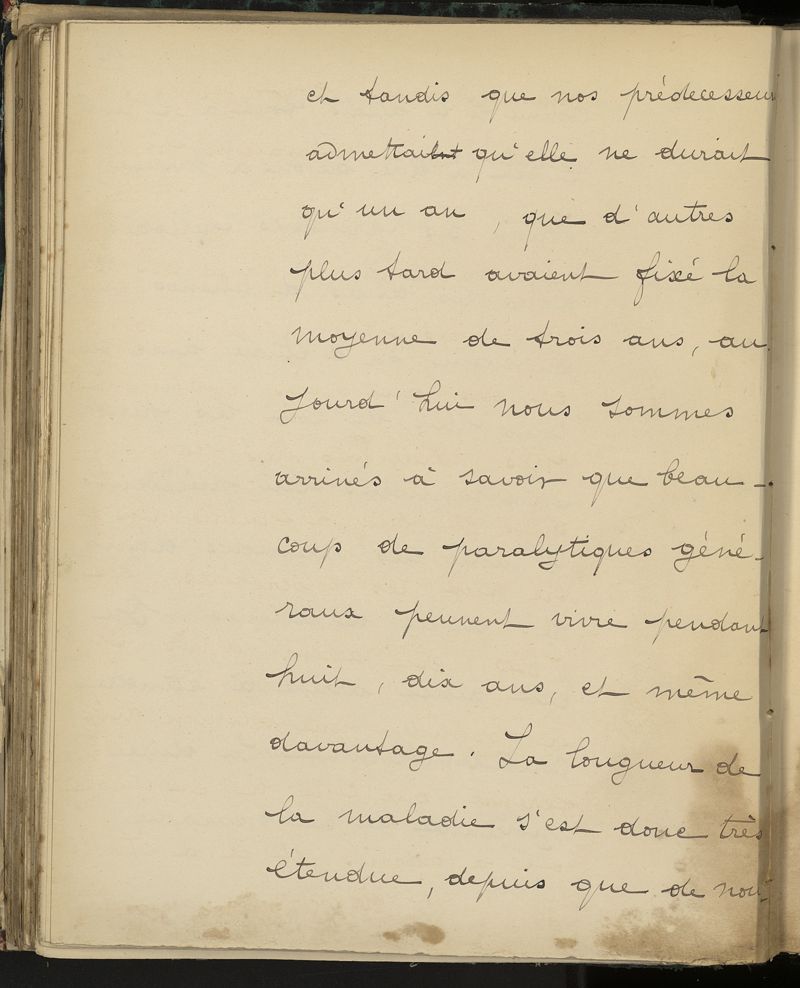 et tandis que nos prédecesseurs
admettaient qu'elle ne durait
qu'un an, que d'autres
plus tard avaient fixé la
moyenne de trois ans, au
jourd'hui nous sommes
arrivés à savoir que beau-
coup de paralytiques géné-
raux peuvent vivre pendant
huit, dix ans, et même
davantage. La longueur de
la maladie s'est donc très
étendue, depuis que de nou-